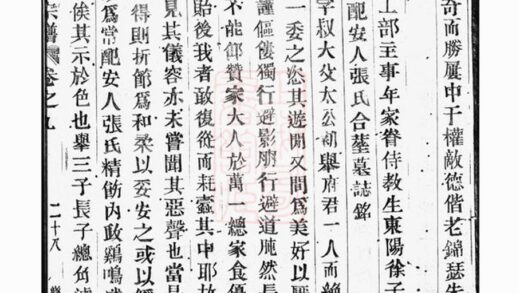 奇而勝屢中于權敵德偕老錦瑟先
配安人張氏合塟墓誌銘
工部主事年家眷侍教生東陽徐子
字叔大父太公初舉府君一人而絶
一委之忽其遊閒又間爲美好以
謹傴僂獨行避影臍行避道
不能郎贊家大人於萬一總家食
貽後我者敢復從而耗蠧其中耶
見其儀容亦未甞聞其惡聲也當
得則折節爲和柔以妥安之或以
爲常配安人張氏精飭内政鷄鳴
俟其示於色也舉三子長子總角
宗譜 卷之九 二十八